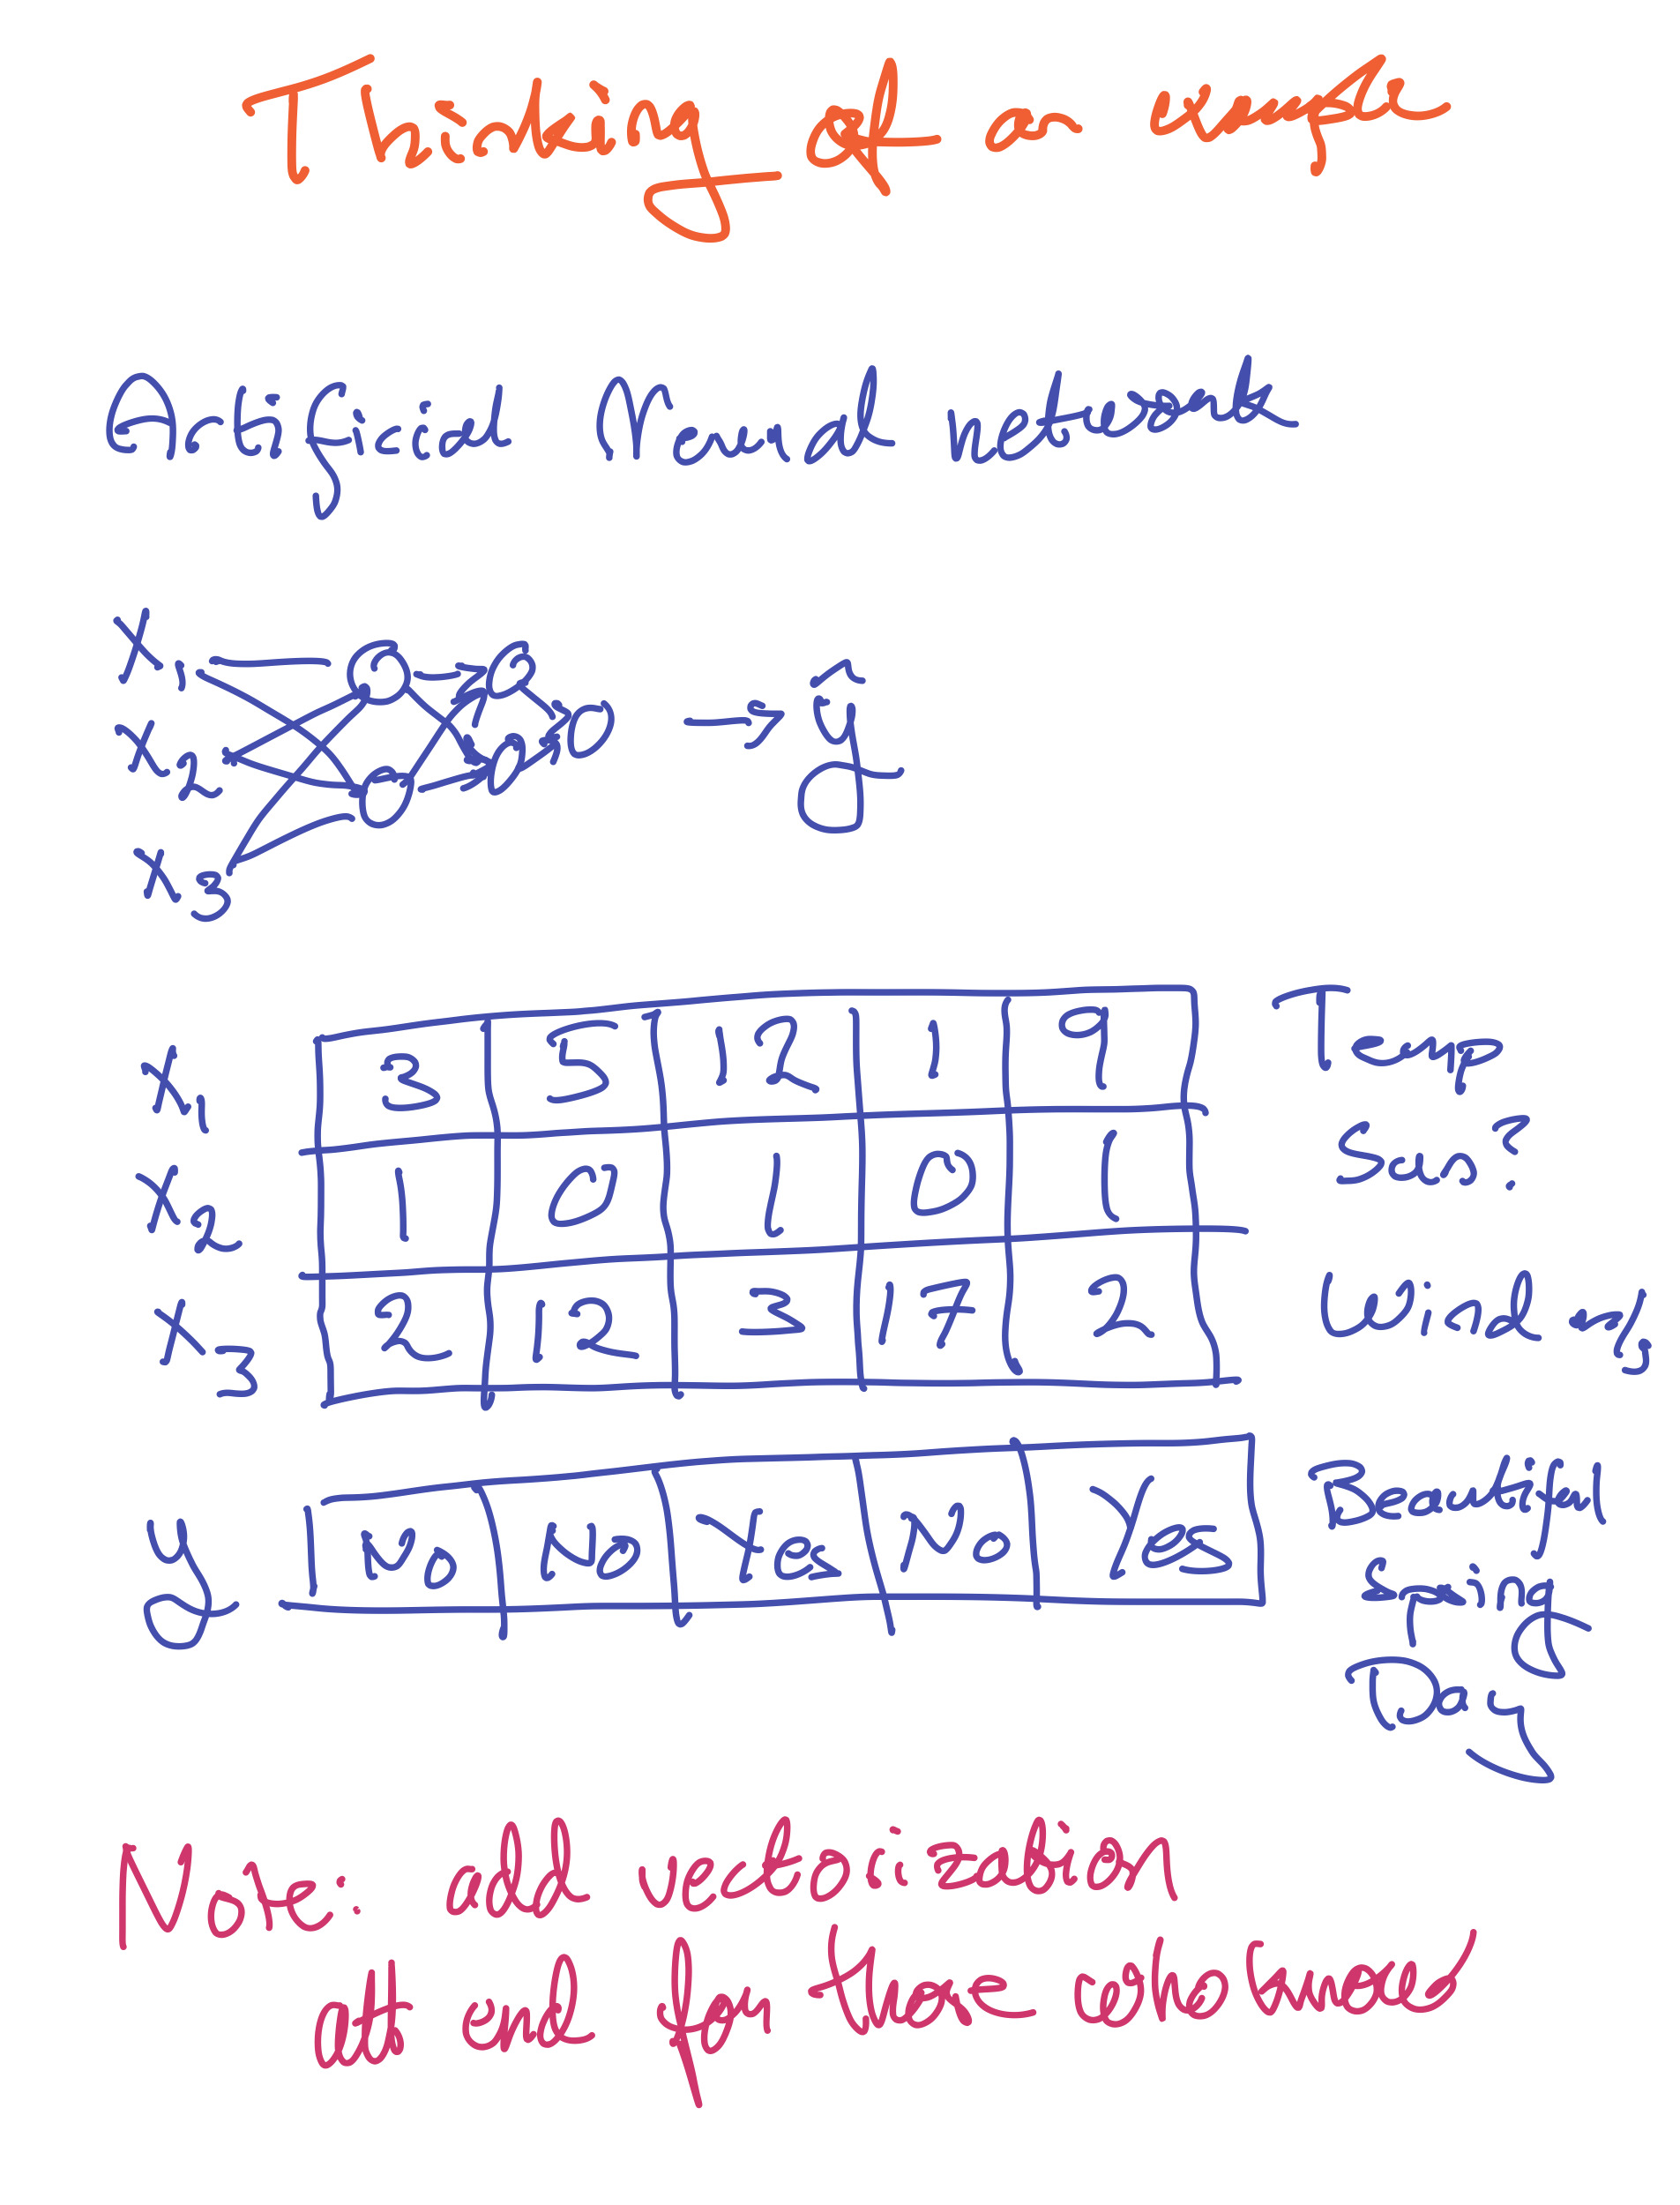 Thinking of an example
Artificial Neural network
x1
x2
x3
→ ŷ
x1 3 5 12 1 9 Temp
x2 1 0 1 0 1 Sun?
x3 2 12 3 17 2 Wind avg
y No No Yes No Yes Beautiful
Spring
Day
Note: add vectorization
at end for those interested